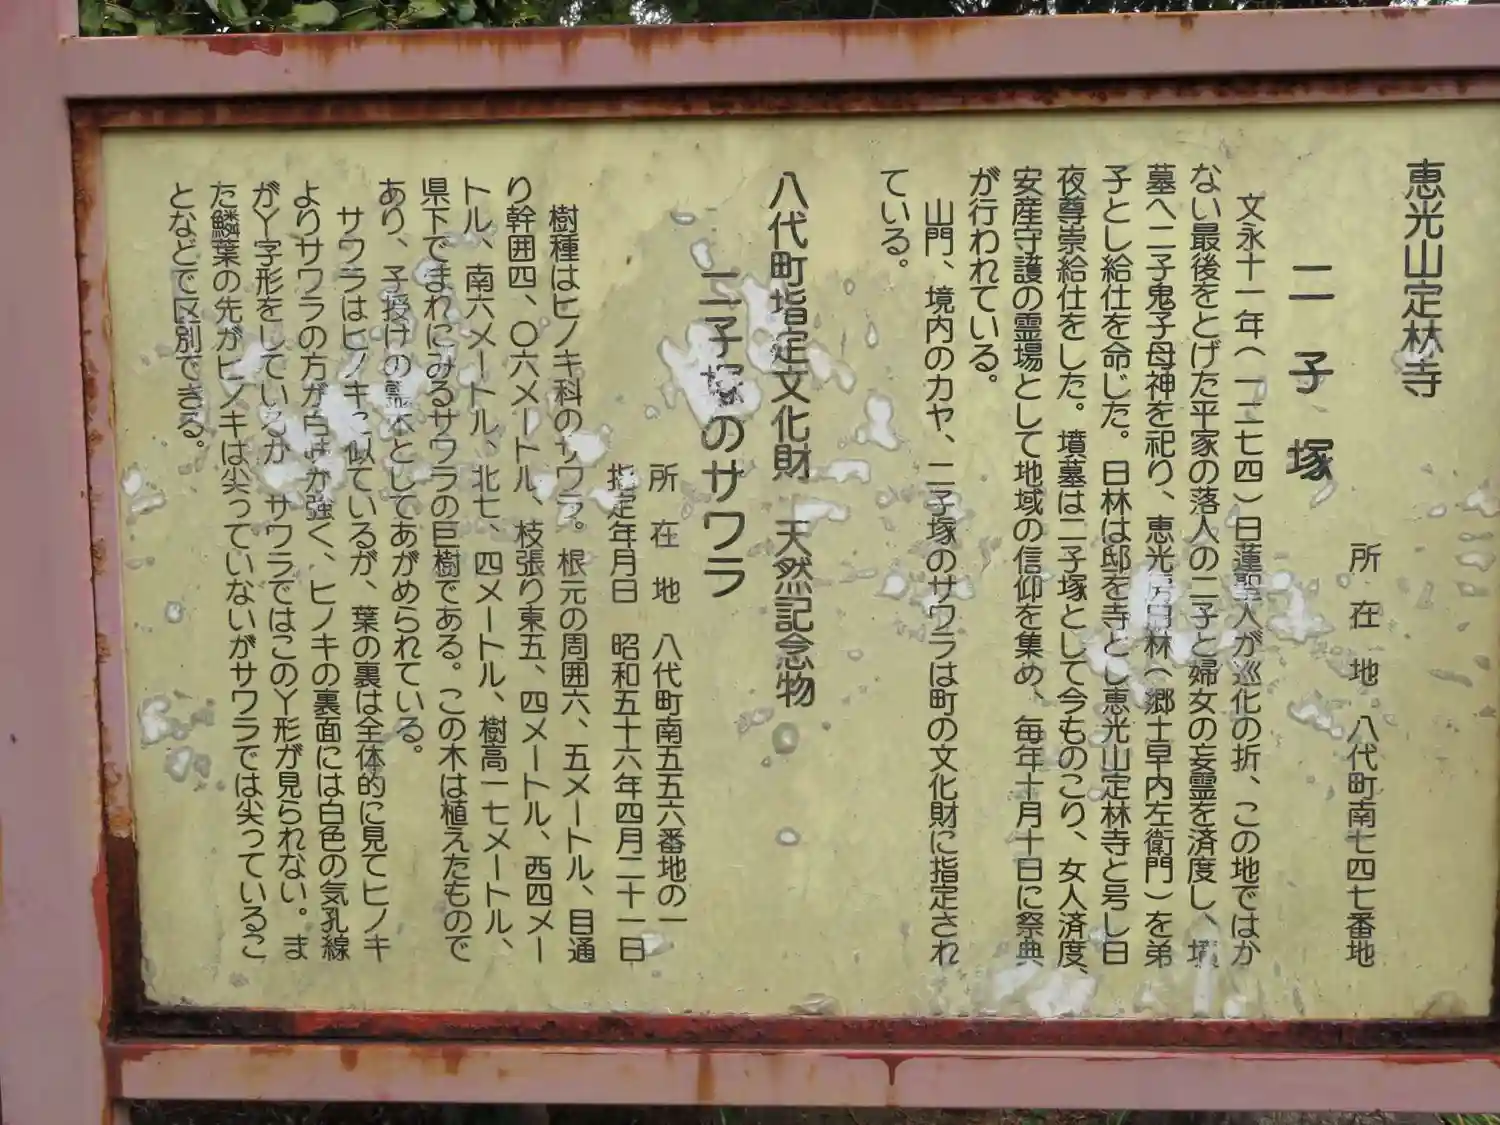 恵光山定林寺
二子塚
所在地 八代町南七四七番地
文永十一年(一二七四)日蓮聖人が巡化の折、この地ではか
ない最後をとげた平家の落人の二子と婦女の妄霊を済度し、墳
墓へ二子鬼子母神を祀り、恵光 日林(郷士早内左衛門)を弟
子とし給仕を命じた。日林は邸を寺とし恵光山定林寺と号し日
夜尊崇給仕をした。墳墓は二子塚として今ものこり、女人済度、
安産守護の霊場として地域の信仰を集め、毎年十月十日に祭典
が行われている。
山門、境内のカヤ、二子塚のサワラは町の文化財に指定され
ている。
八代町指定文化財 天然記念物
二子塚のサワラ
所在地 八代町南五五六番地の一
指定年月日 昭和五十六年四月二十一日
樹種はヒノキ科のサワラ。根元の周囲六、五メートル、目通
り幹囲四、〇六メートル、枝張り東五、四メートル、西四メー
トル、南六メートル、北七、四メートル、樹高一七メートル、
県下でまれにみるサワラの巨樹である。この木は植えたもので
あり、子授けの霊木としてあがめられている。
サワラはヒノキに似ているが、葉の裏は全体的に見てヒノキ
よりサワラの方が白味が強く、ヒノキの裏面には白色の気孔線
がY字形をしているが サワラではこのY形が見られない。ま
た鱗葉の先がヒノキは尖っていないがサワラでは尖っているこ
となどで区別できる。